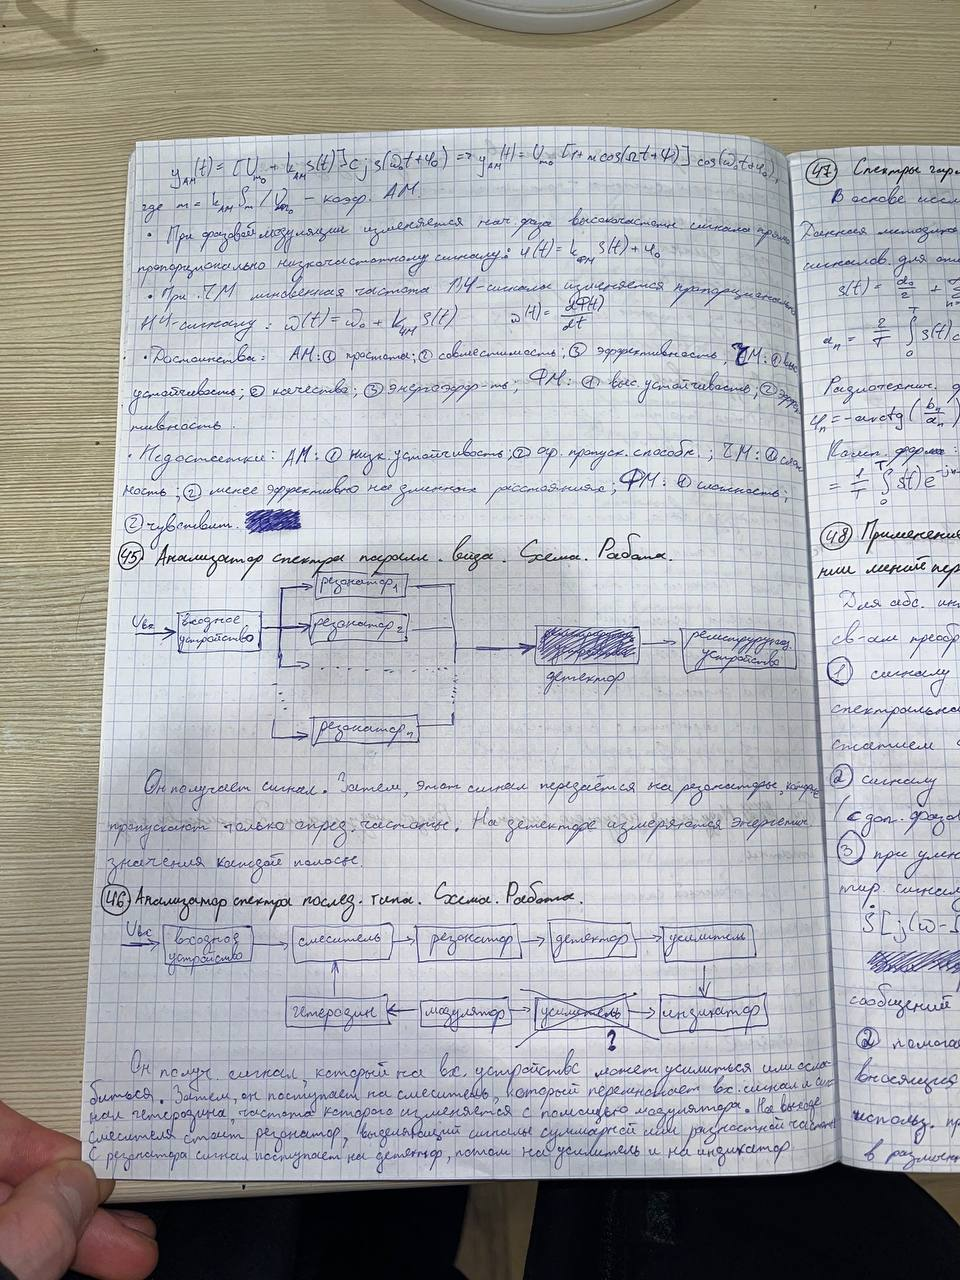 y_АМ(t) = [U_m0 + k_АМ s(t)] cos(ω₀t+φ₀) => y_АМ(t) = U_m0 [1 + m cos(Ωt+Ψ)] cos(ω₀t+φ₀),
где m = k_АМ S_m / U_m0 – коэф. АМ.
• При фазовой модуляции изменяется нач. фаза высокочастотн сигнала прямо
пропорционально низкочастотному сигналу: φ(t) = k_ФМ s(t) + φ₀
• При ЧМ мгновенная частота ВЧ-сигнала изменяется пропорционально
НЧ-сигналу: ω(t) = ω₀ + k_ЧМ s(t) ω(t) = dΦ(t)/dt
• Достоинства: АМ: ① простота; ② совместимость; ③ эффективность; ЧМ: ① выс
устойчивость; ② качество; ③ энергоэфф-ть; ФМ: ① выс. устойчивость; ② эффек
тивность
• Недостатки: АМ: ① низк. устойчивость; ② ор. пропуск. способн.; ЧМ: ① слож
ность; ② менее эффективно на длинных расстояниях; ФМ: ① сложность;
② чувствит.
45 Анализатор спектра паралл. вида. Схема. Работа.
Uвх
входное
устройство
резонатор₁
резонатор₂
резонатор n
детектор
регистрирующ.
устройство
Он получает сигнал. Затем, этот сигнал передаётся на резонаторы, которые
пропускают только опред. частоты. На детекторе измеряются энергетич
значения каждой полосы.
46 Анализатор спектра послед. типа. Схема. Работа.
Uвх
входное
устройство
смеситель
резонатор
детектор
усилитель
гетеродин
модулятор
усилитель
индикатор
?
Он получ. сигнал, который на вх. устройстве может усилиться или осла-
биться. Затем, он поступает на смеситель, который перемножает вх. сигнал и сиг-
нал гетеродина, частота которого изменяется с помощью модулятора. На выходе
смесителя стоит резонатор, выделяющий сигналы суммарной или разностной частоты
С резонатора сигнал поступает на детектор, потом на усилитель и на индикатор
47 Спектры гар
В основе иссл
Данная методик
сигналов. для опи
s(t) = a₀/2 +
aₙ = 2/T ∫₀ᵀ s(t) c
Радиотехнич.
φₙ = -arctg(bₙ/aₙ)
Компл. форма:
= 1/T ∫₀ᵀ s(t) e^-jn
48 Применени
нии линей пер
Для абс.
св-ам преобр
① сигналу
спектрально
② сигналу
(с доп. фазо
③ при умн
тир. сигнал
Ṡ[j(ω-
сообщений
② помога
вносящих
использ. пр
в различн